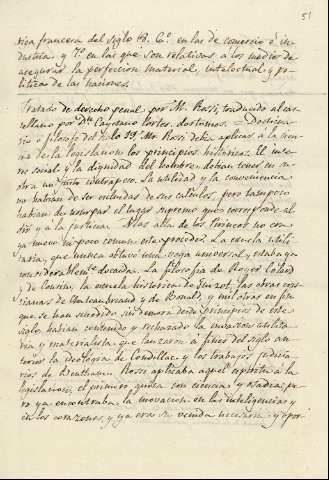 51
rica francesa del siglo 18. 6.º en las de comercio é in-
dustria y 7.º en las que son relativas, á los medios de
asegurar la perfeccion material, intelectual y po-
lítica de las naciones.
Tratado de derecho penal por M. Rossi, traducido al cas-
tellano por Dn. Cayetano Cortes, dos tomos. = Doctrina-
rio ó filosofo del siglo 19, Mr. Rossi debia aplicar á la cien-
cia de la legislacion los principios históricos. El inte-
res social y la dignidad del hombre, debian tener en su
obra un justo contrapeso. La utilidad y la conveniencia
no habian de ser excluidas de sus calculos, pero tampoco
habian de usurpar el lugar supremo que corresponde al
y á la justicia. Mas allá de los Pirineos no era
ya nuevo ni poco comun este proceder. La escuela utili-
taria, que nunca obtuvo una voga universal, estaba ya
considerablemente decaida. La filosofia de Royer Collard
y de Cousin, la escuela historica de Guizot, las obras cris-
tianas de Chateaubriand y de Bonald, y mil otras en fin
que se han sucedido sin demora desde principios de este
siglo habian contenido y rechazado la invasion utilita-
ria y materialista que lanzaron á fines del siglo an-
terior la ideologia de Condillac y los trabajos juridi-
cos de Bentham. Rossi aplicaba aquel espiritu á la
legislacion, el primero quizá con ciencia y osadia; pe-
ro ya encontraba la inovacion en las inteligencias y
en los corazones, y ya era su venida necesaria y opor-